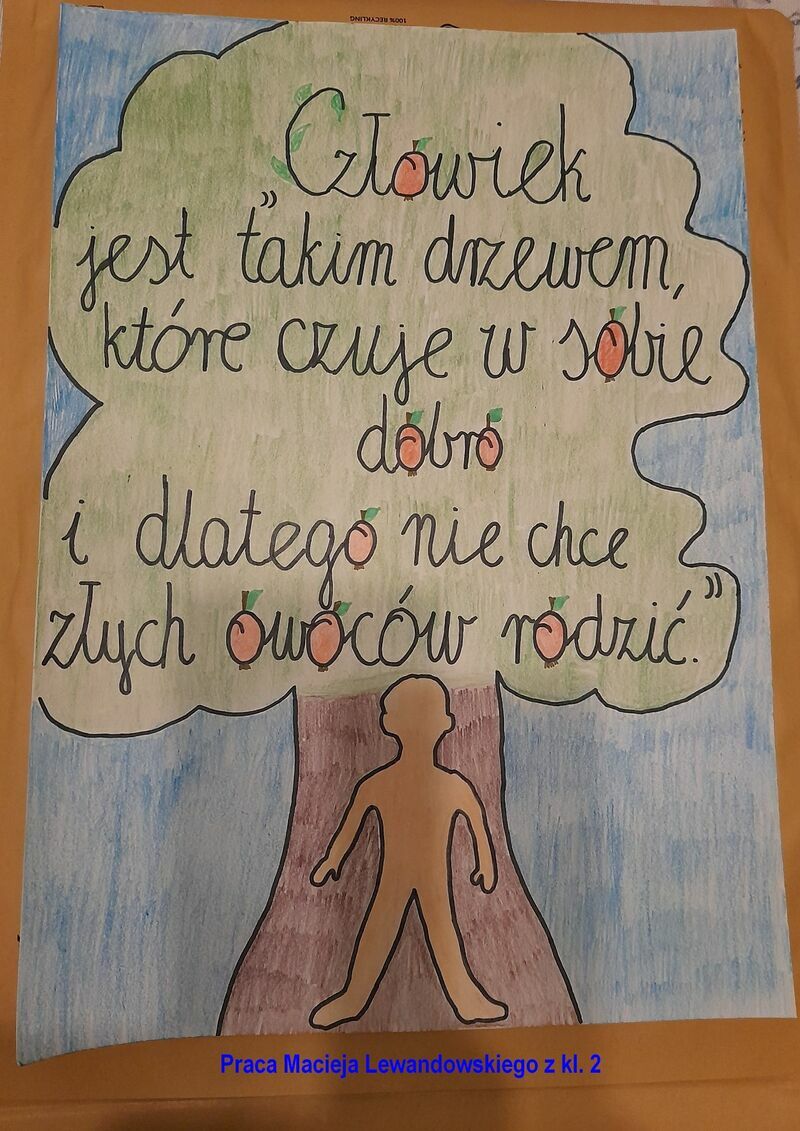 100% RECYKLING
„Człowiek
jest takim drzewem,
które czuje w sobie
dobro
i dlatego nie chce
złych owoców rodzić.”
Praca Macieja Lewandowskiego z kl. 2